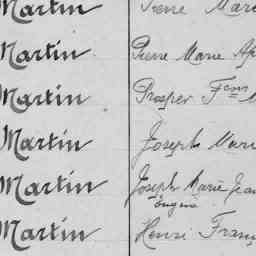 Martin Pierre Marie
Martin Pierre Marie
Martin Prosper Fcois
Martin Joseph Marie
Martin Joseph Marie Jean
Eugène
Martin Henri Franç